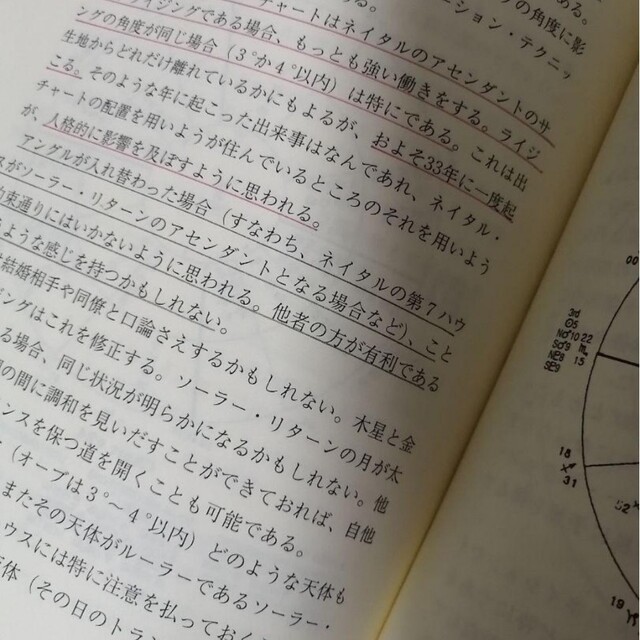 の角度に影
ーション・テクニッ
チャートはネイタルのアセンダントのサ
ライジングである場合、もっとも強い働きをする。ライジ
ングの角度が同じ場合（3°か4°以内）は特にである。これは出
生地からどれだけ離れているかにもよるが、およそ33年に一度起
こる。そのような年に起こった出来事はなんであれ、ネイタル・
チャートの配置を用いようが住んでいるところのそれを用いよう
が、人格的に影響を及ぼすように思われる。
アングルが入れ替わった場合（すなわち、ネイタルの第7ハウ
スがソーラー・リターンのアセンダントとなる場合など）、こと
約束通りにはいかないように思われる。他者の方が有利である
ような感じを持つかもしれない。
結婚相手や同僚と口論さえするかもしれない。木星と金
ジングはこれを修正する。ソーラー・リターンの月が太
る場合、同じ状況が明らかになるかもしれない。他
の間に調和を見いだすことができておれば、自他
ンスを保つ道を開くことも可能である。
（オーブは3°～4°以内）どのような天体も
またその天体がルーラーであるソーラー・
ウスには特に注意を払っておく
天体（その日のトラン
00
3d
18
31
19